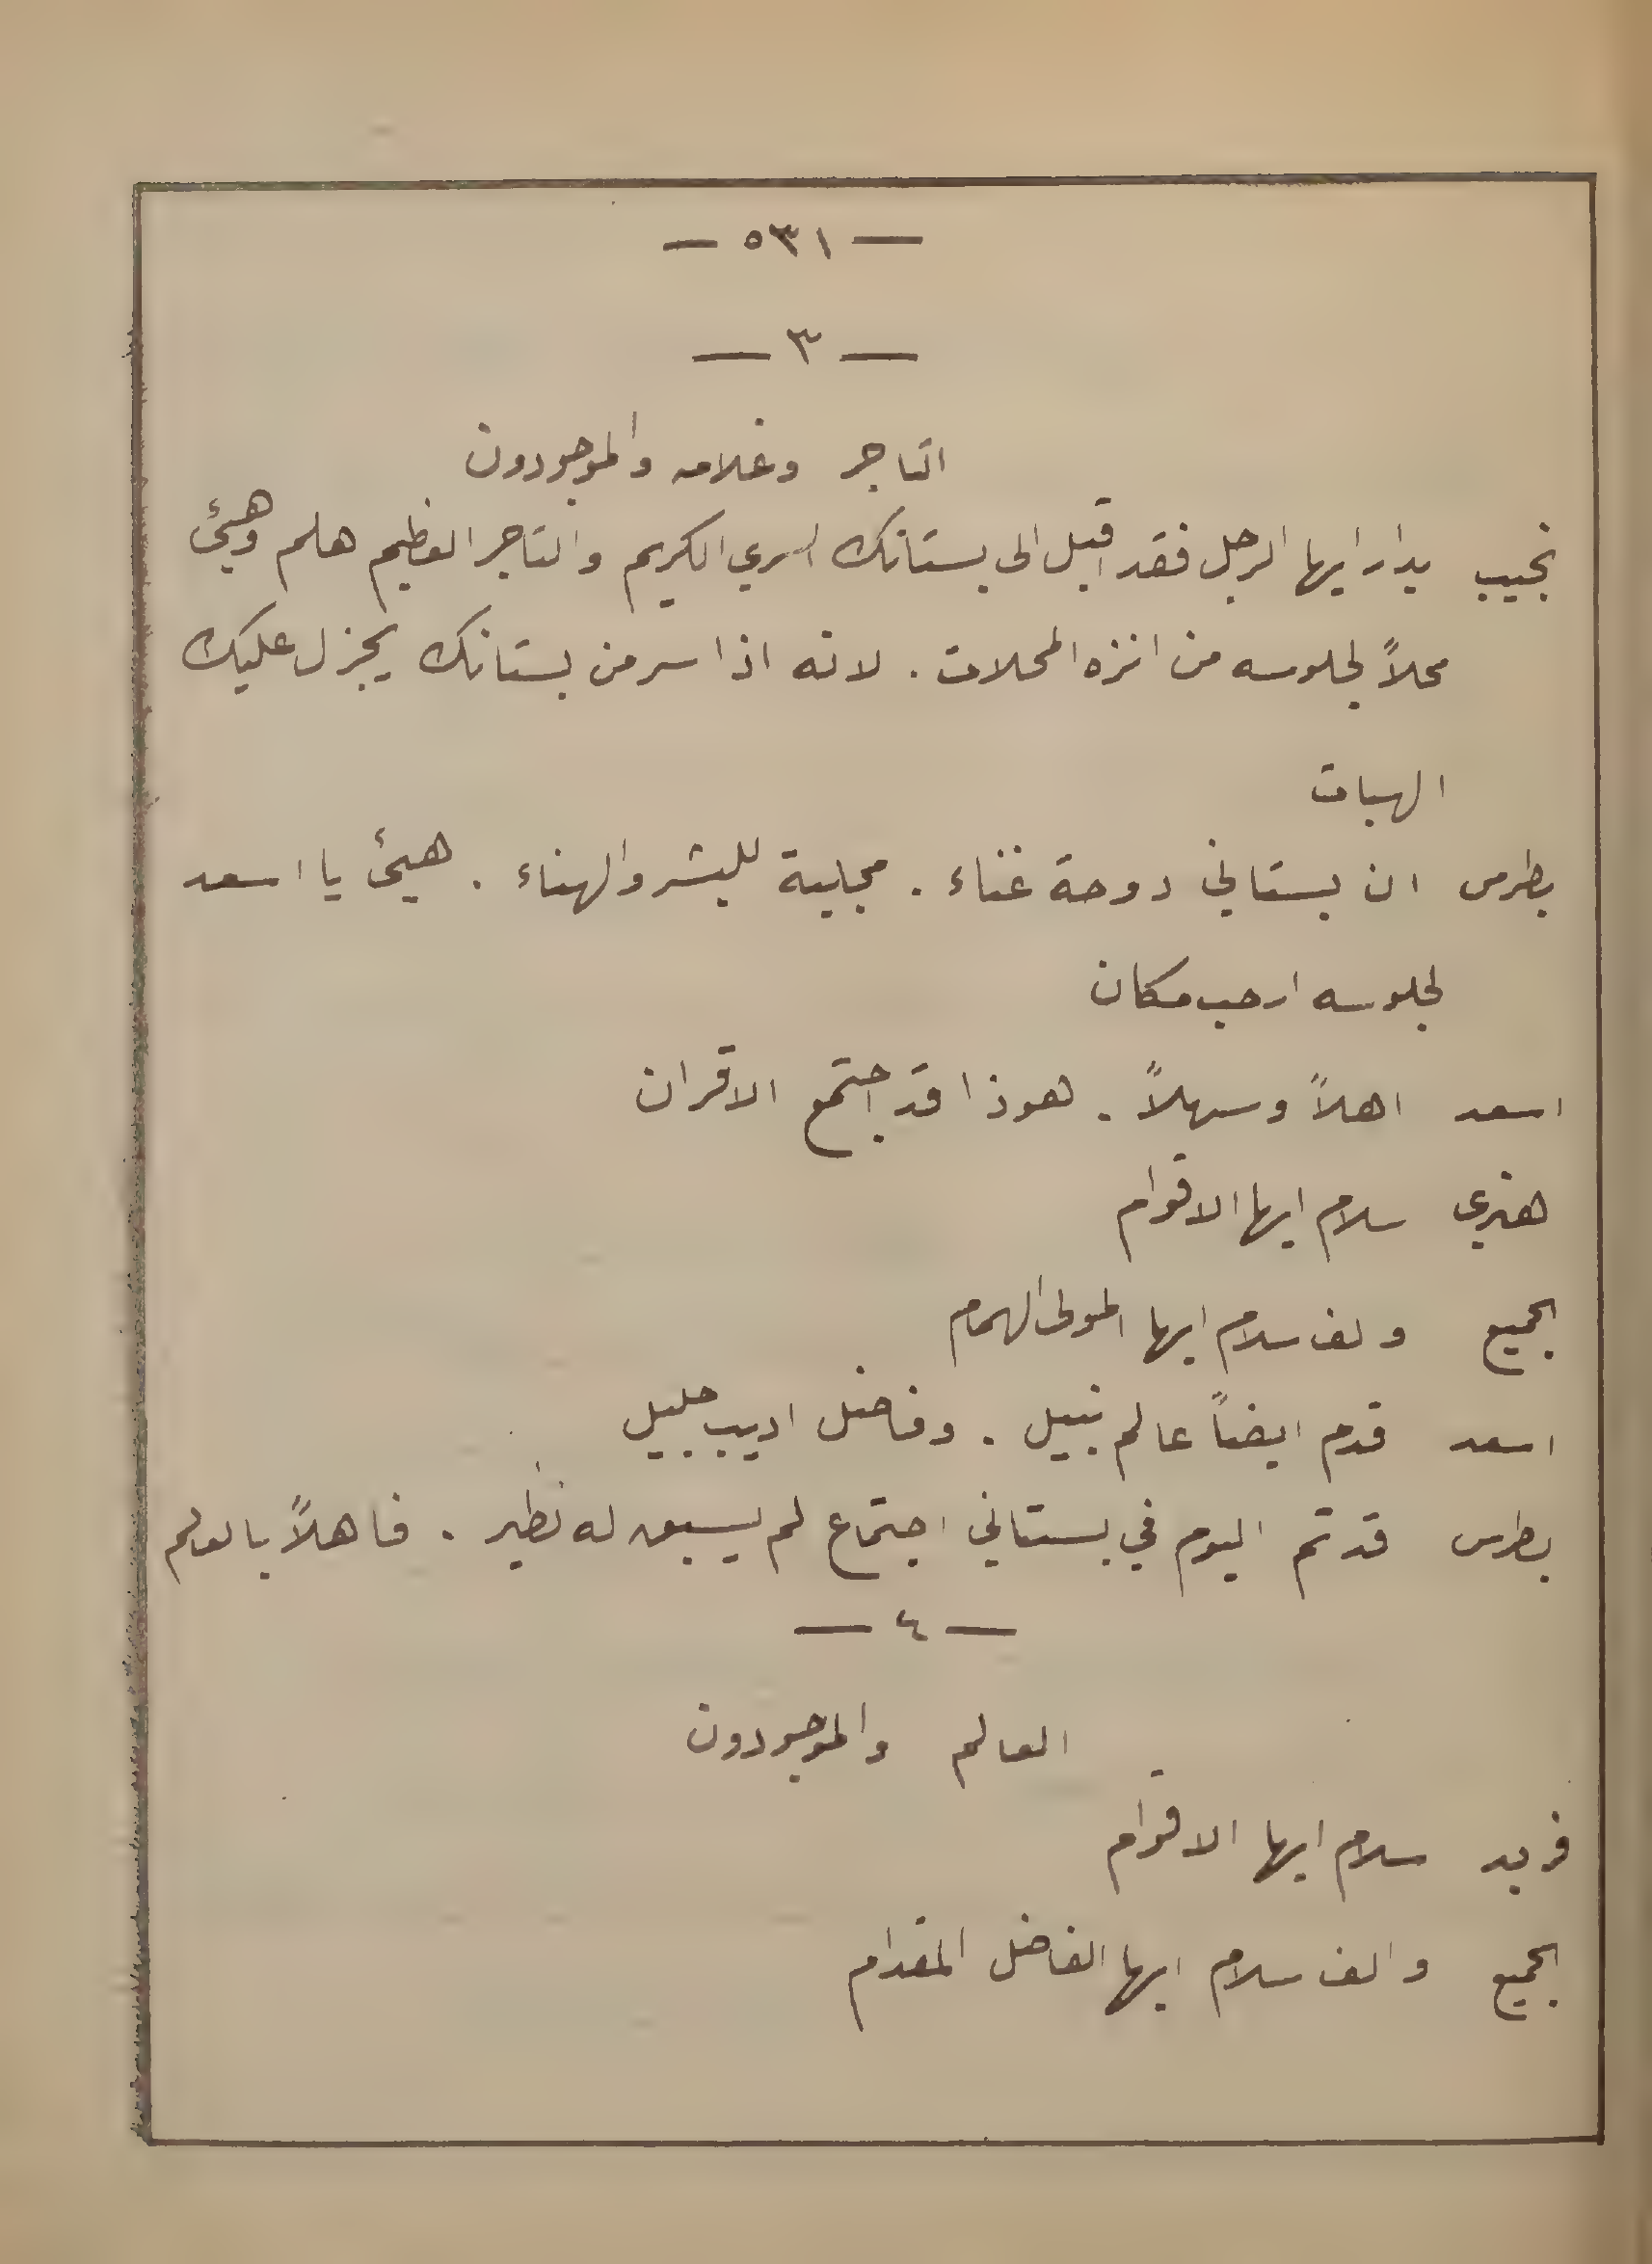 — ٥٣١ —
— ٣ —
التاجر وغلامه والموجودون
نجيب بدار ايها الرجل فقد اقبل الى بستانك السري الكريم والتاجر العظيم هلم وهيئ
محلاً لجلوسه من انزه المحلات . لانه اذا سر من بستانك يجزل عليك
الهبات
بطرس ان بستاني دوحة غناء . مجلبة للبشر والهناء . هيئ يا اسعد
لجلوسه ارحب مكان
اسعد اهلاً وسهلاً . هوذا قد اجتمع الاقران
هنري سلام ايها الاقوام
الجميع والف سلام ايها المولى الهمام
اسعد قدم ايضاً عالم نبيل . وفاضل اديب جليل
بطرس قد تم اليوم في بستاني اجتماع لم يسبق له نظير . فاهلاً بالعالم
— ٤ —
العالم والموجودون
فريد سلام ايها الاقوام
الجميع والف سلام ايها الفاضل المقدام